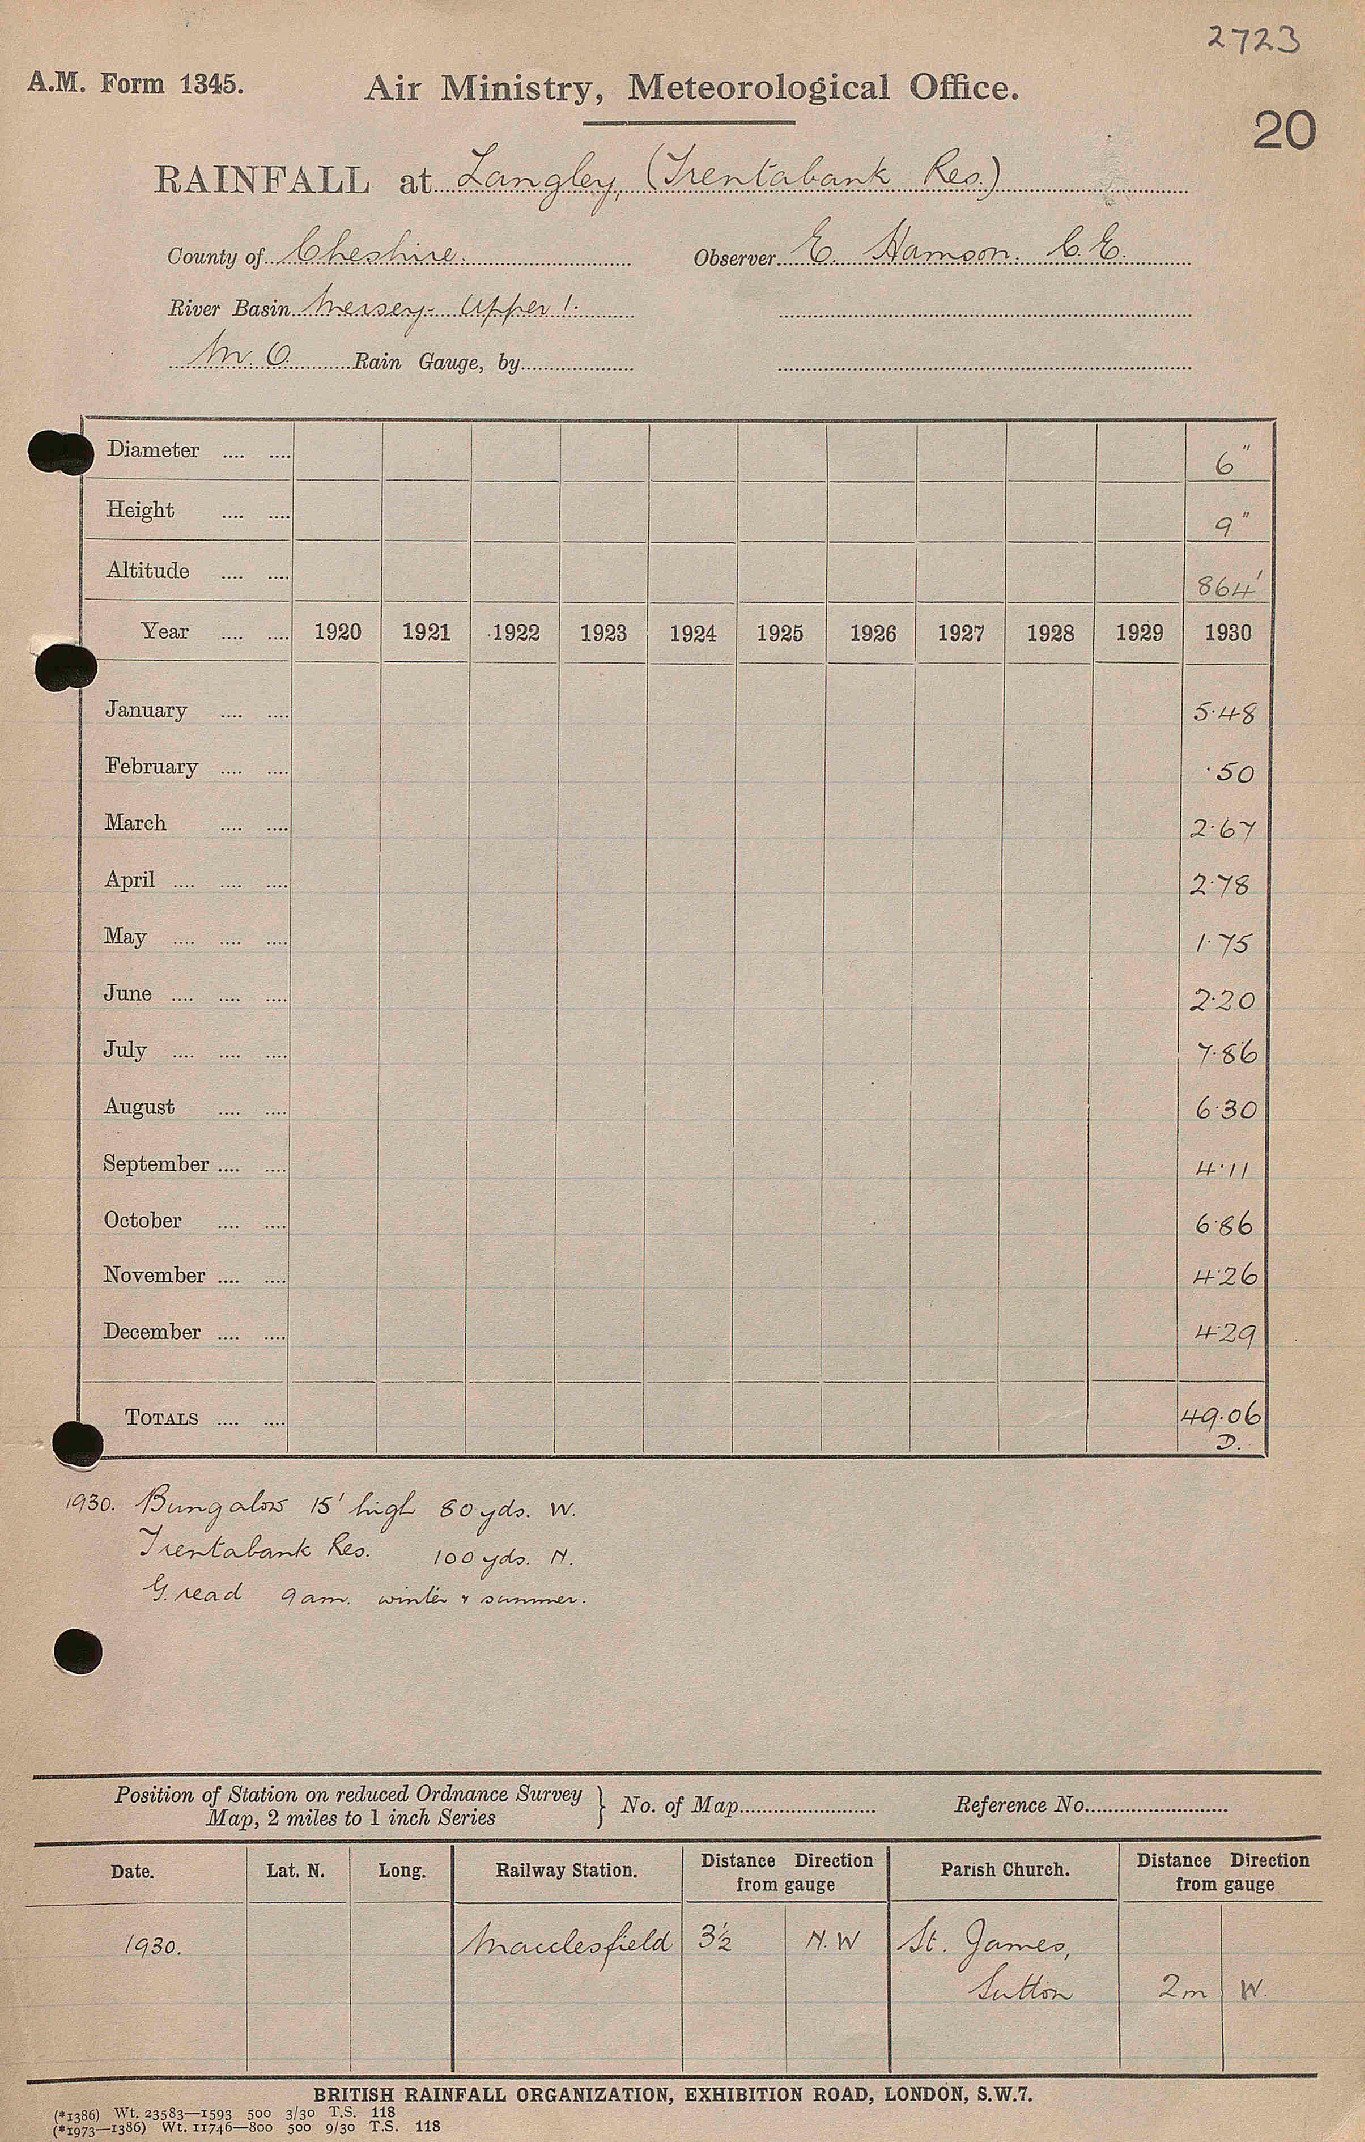 2723
A.M. Form 1345. Air Ministry, Meteorological Office.
20
RAINFALL at Langley, (Trentabank Res.)
County of Cheshire. Observer E. Hamson. C.E.
River Basin Mersey - Upper 1.
M.O. Rain Gauge, by
Diameter .... .... 6"
Height .... .... 9"
Altitude .... .... 864'
Year .... .... 1920 1921 1922 1923 1924 1925 1926 1927 1928 1929 1930
January .... .... 5.48
February .... .... .50
March .... .... 2.67
April .... .... .... 2.78
May .... .... .... 1.75
June .... .... .... 2.20
July .... .... .... 7.86
August .... .... 6.30
September .... .... 4.11
October .... .... 6.86
November .... .... 4.26
December .... .... 4.29
TOTALS .... .... 49.06
D.
1930. Bungalow 15' high 80 yds. W.
Trentabank Res. 100 yds. N.
G. read 9 am. winter & summer.
Position of Station on reduced Ordnance Survey
Map, 2 miles to 1 inch Series } No. of Map Reference No.
Date. Lat. N. Long. Railway Station. Distance Direction from gauge Parish Church. Distance Direction from gauge
1930. Macclesfield 3½ N.W St. James,
Sutton 2m W.
BRITISH RAINFALL ORGANIZATION, EXHIBITION ROAD, LONDON, S.W.7.
(*1386) Wt. 23583—1593 500 3/30 T.S. 118
(*1973—1386) Wt. 11746—800 500 9/30 T.S. 118